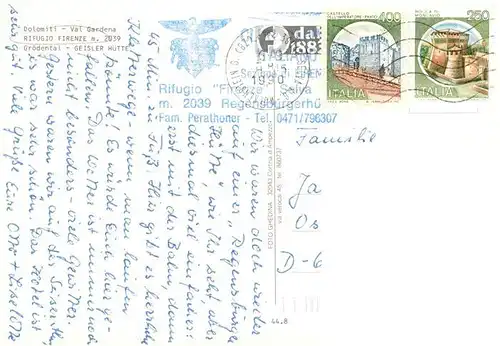 Dolomiti - Val Gardena
RIFUGIO FIRENZE m. 2039
Grödental - GEISLER HÜTTE
Rifugio "Firenze"
m. 2039 Regensburgerhü
Fam. Perathoner - Tel. 0471/796307
CASTELLO
400
ITALIA
250
ITALIA
Wir waren doch wieder
auf einer "Regensburger
Hütte", wie Ihr seht, aber
diesmal viel einfacher!
erst mit der Bahn, dann
45 Min. zu Fuß. Hier gibt es herrliche
Kletterwege - wenn man laufen
könnte! Es würde Euch hier ge-
fallen. Das Wetter ist immer noch
nicht besonders - viele Gewitter.
Gestern waren wir auf der Seiser Alm,
es war sehr schön. Das Hotel ist
sehr gut. Viele Grüße Eure Otto + Liselotte
FOTO GHEDINA - 32043 Cortina d'Ampezzo
Familie
Ja
Os
D-6
44.8